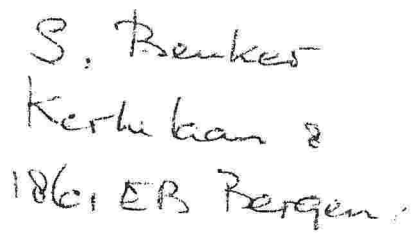 S. Benker
Kerkelaan 8
1861 EB Bergen.